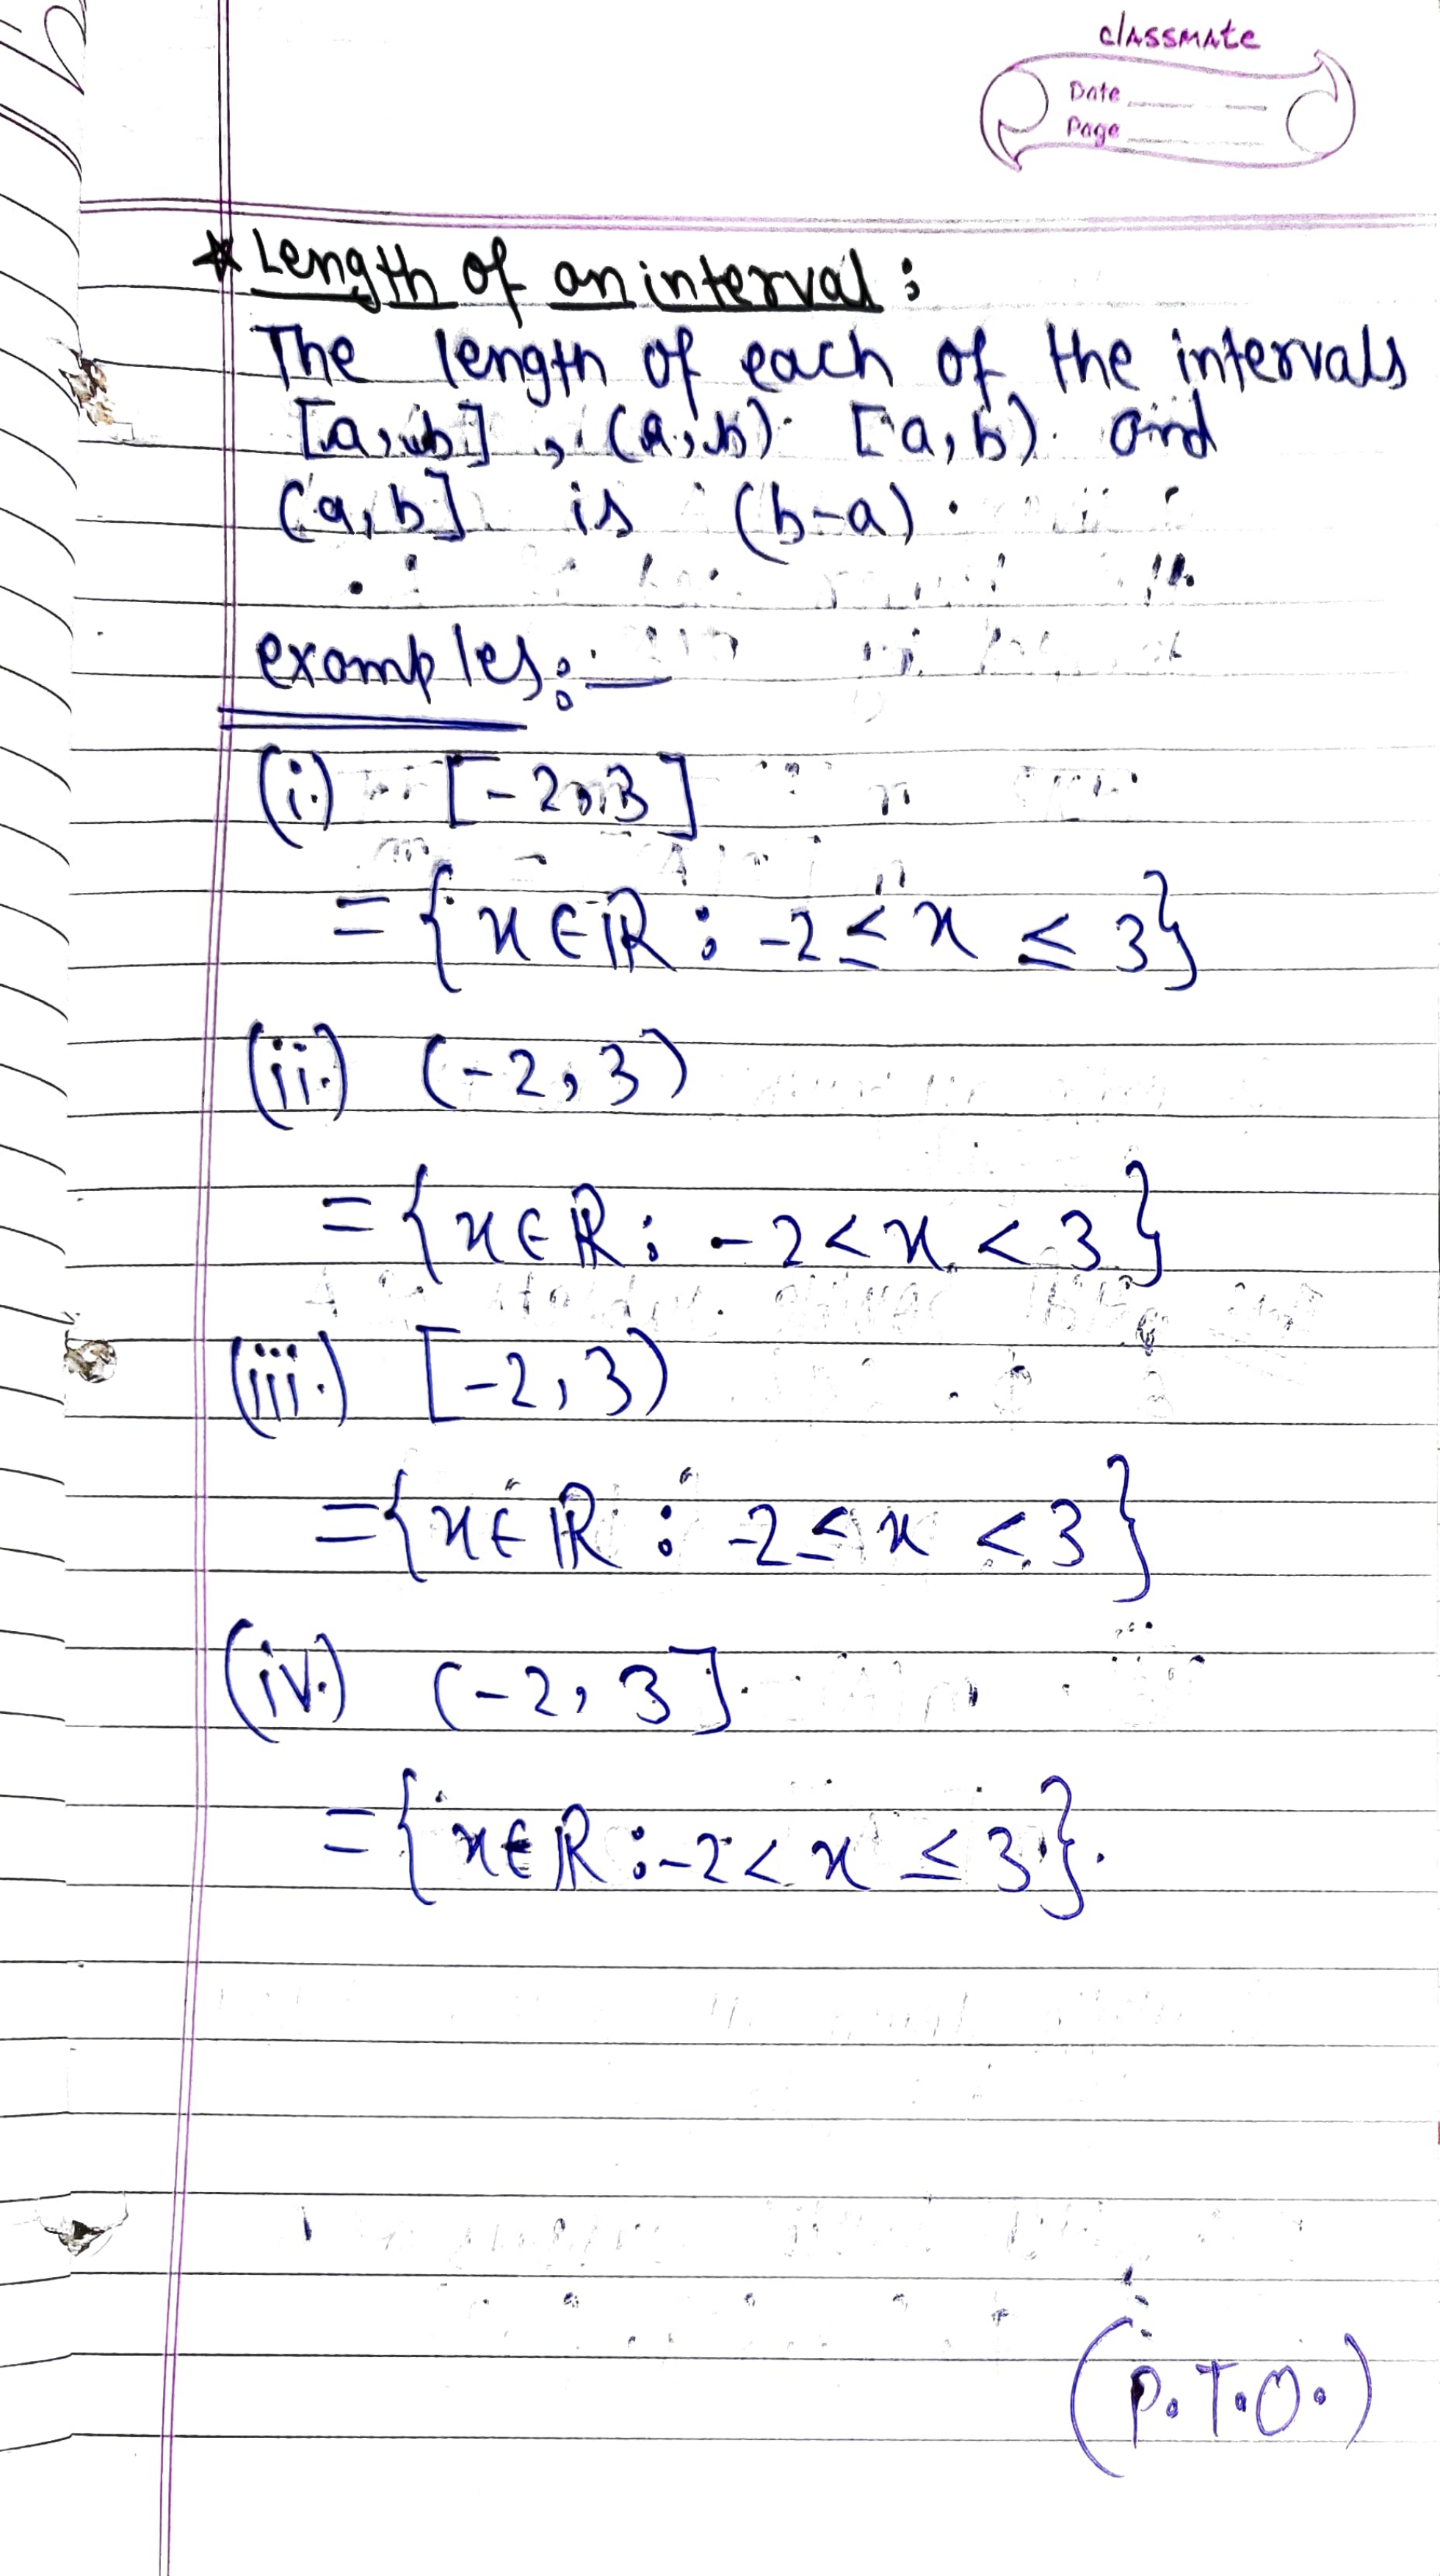 classmate
Date
Page
* Length of an interval :
The length of each of the intervals
[a, b] , (a, b) [a, b) and
(a, b] is (b-a) .
examples:—
(i.) [-2, 3]
= { x ∈ ℝ : -2 ≤ x ≤ 3}
(ii.) (-2, 3)
= { x ∈ ℝ : -2 < x < 3 }
(iii.) [-2, 3)
= { x ∈ ℝ : -2 ≤ x < 3 }
(iv.) (-2, 3]
= { x ∈ ℝ : -2 < x ≤ 3 }.
(P.T.O.)